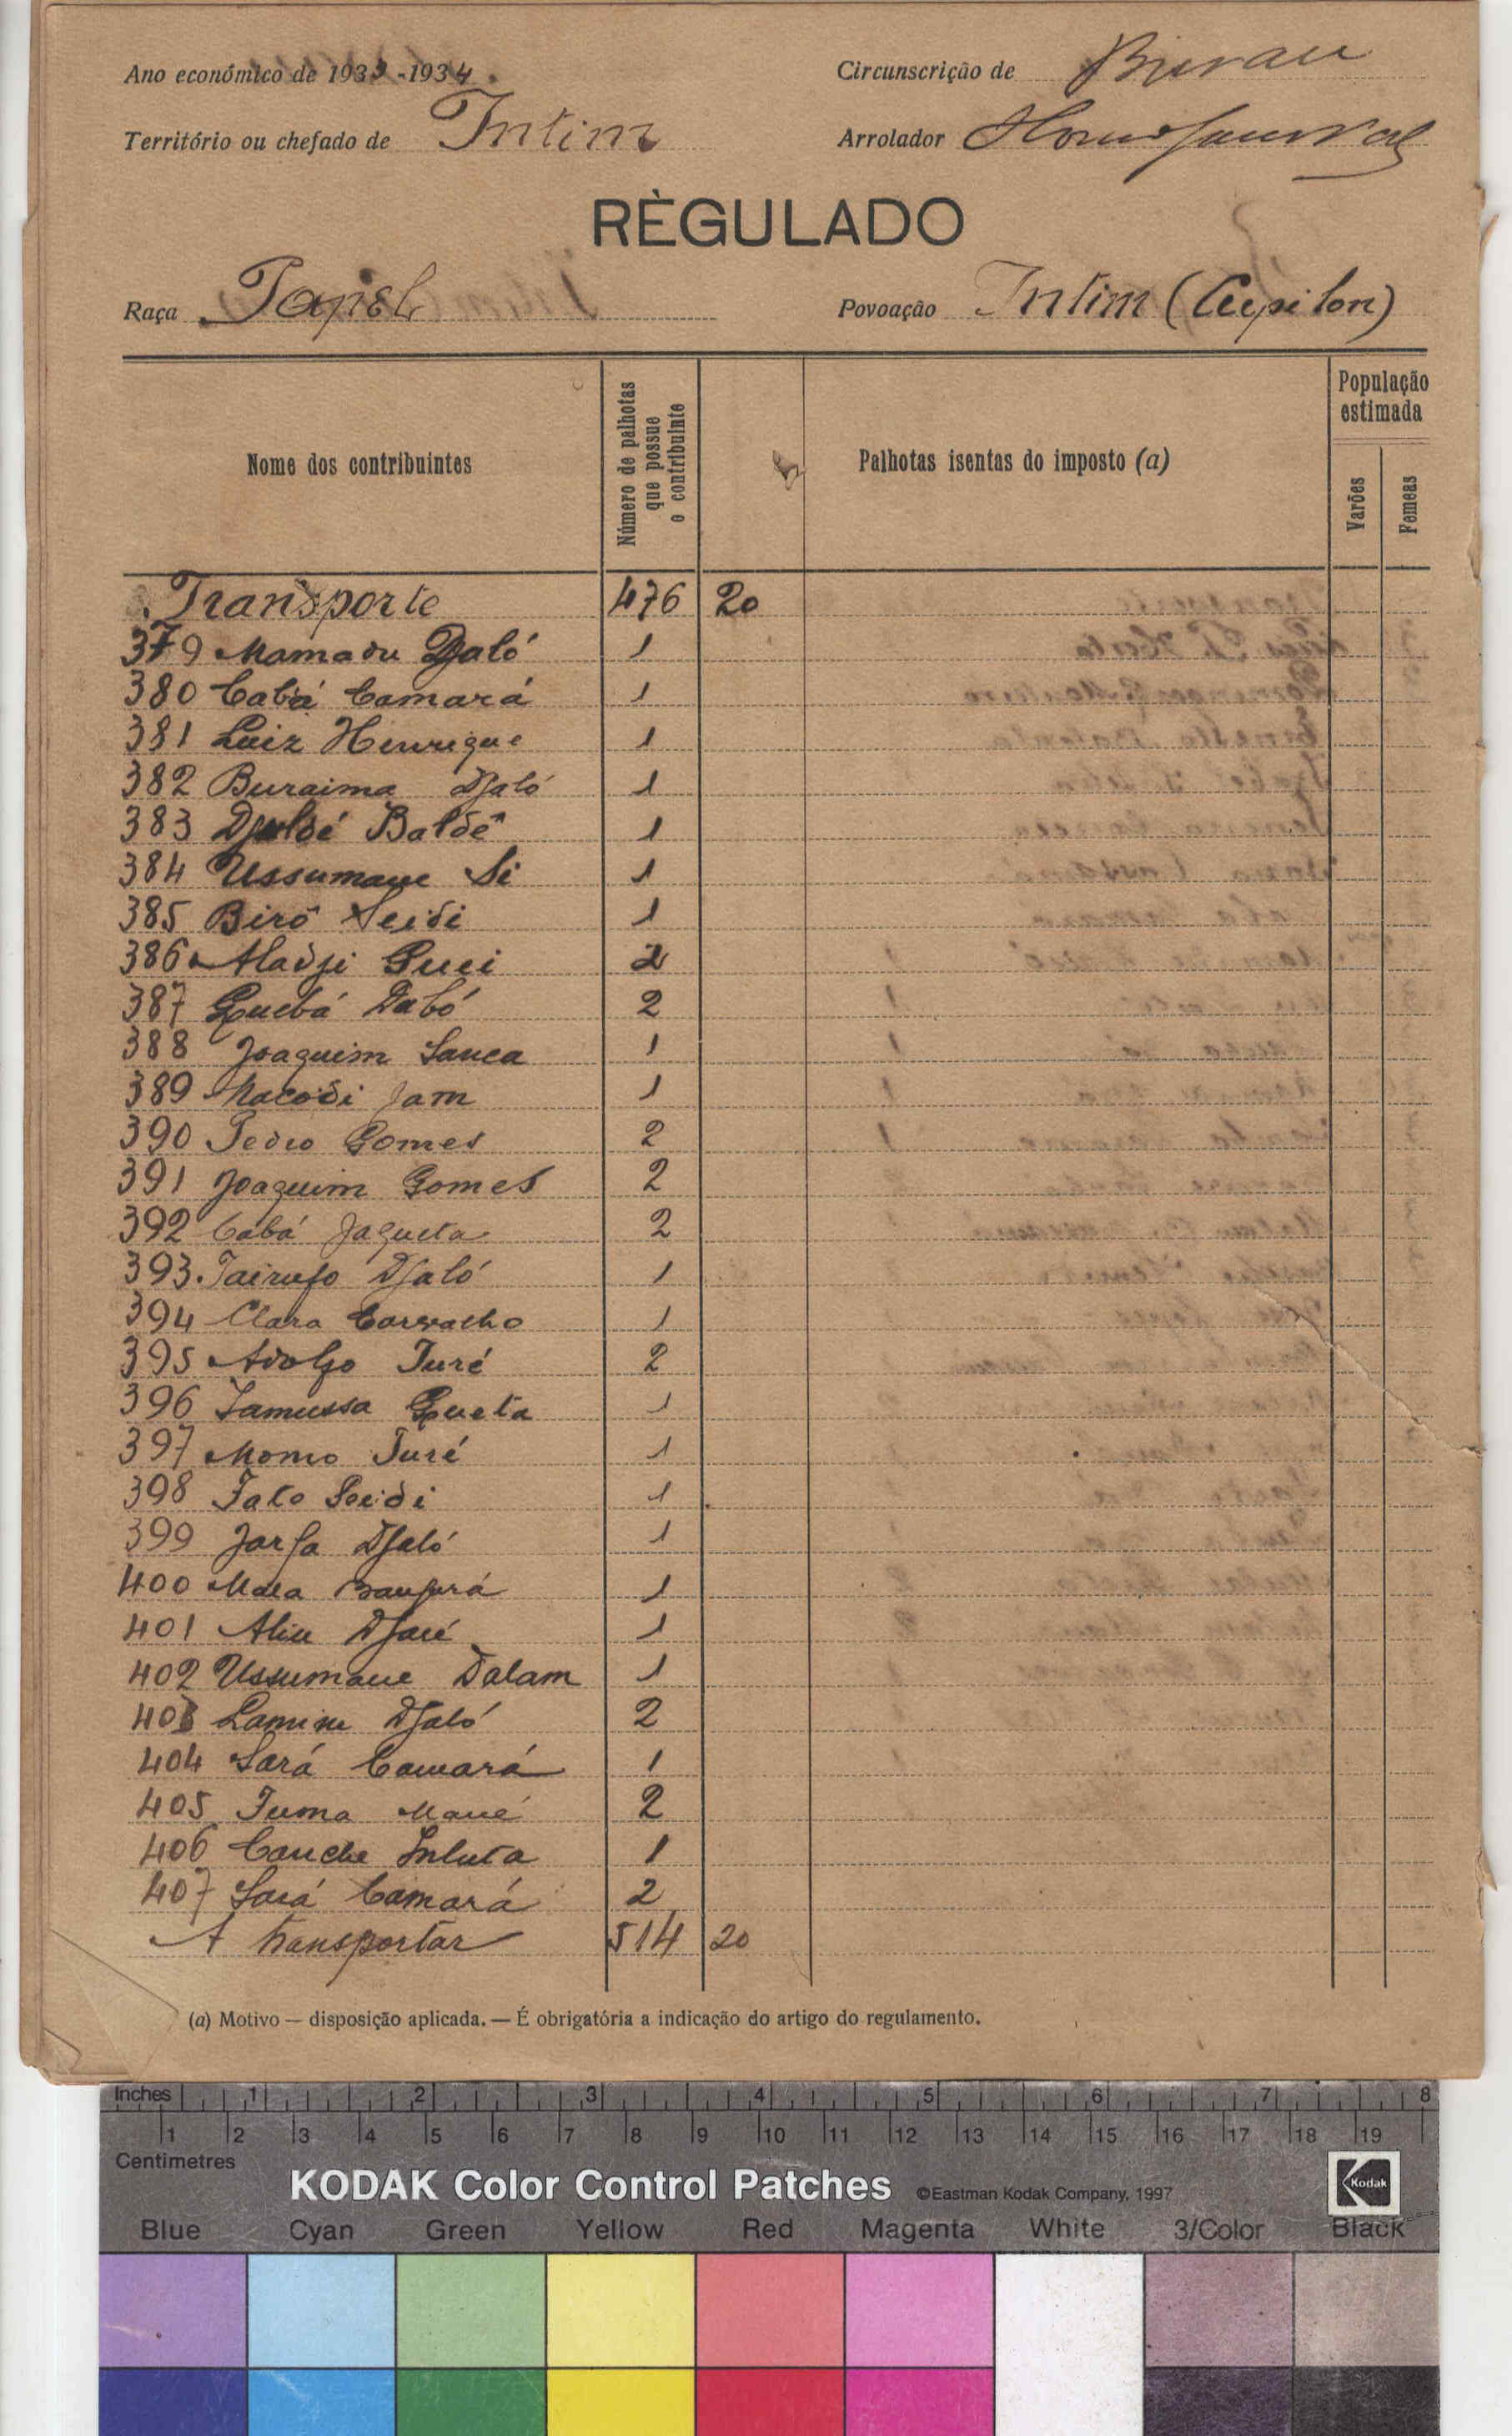 Ano económico de 1933-1934.
Circunscrição de Bissau
Território ou chefado de Intim
Arrolador
RÈGULADO
Raça Papel
Povoação Intim (Cupilon)
Nome dos contribuintes
Número de palhotas que possue o contribuinte
Palhotas isentas do imposto (a)
População estimada
Varões
Femeas
Transporte 476 20
379 Mamadu Djaló 1
380 Cabá Camará 1
381 Luiz Henrique 1
382 Buraima Djaló 1
383 Djuldé Baldé 1
384 Ussumane Si 1
385 Biró Seidi 1
386 Aladji 2
387 Quebá Dabó 2
388 Joaquim Sanca 1
389 Macodi Jam 1
390 Pedro Gomes 2
391 Joaquim Gomes 2
392 Cabá Jaqueta 2
393. Tairufo Djaló 1
394 Clara Carvalho 1
395 Adolfo Turé 2
396 Iamussa Queta 1
397 Momo Turé 1
398 Fato Seidi 1
399 Jarga Djaló 1
400 1
401 Aliu Djaué 1
402 Ussumane Dalam 1
403 Lamine Djaló 2
404 Sará Camará 1
405 Juma Mané 2
406 Cauche Inluta 1
407 Sará Camará 2
A transportar 514 20
(a) Motivo — disposição aplicada. — É obrigatória a indicação do artigo do regulamento.
Inches 1 2 3 4 5 6 7 8
1 2 3 4 5 6 7 8 9 10 11 12 13 14 15 16 17 18 19
Centimetres
KODAK Color Control Patches ©Eastman Kodak Company, 1997 Kodak
Blue Cyan Green Yellow Red Magenta White 3/Color Black